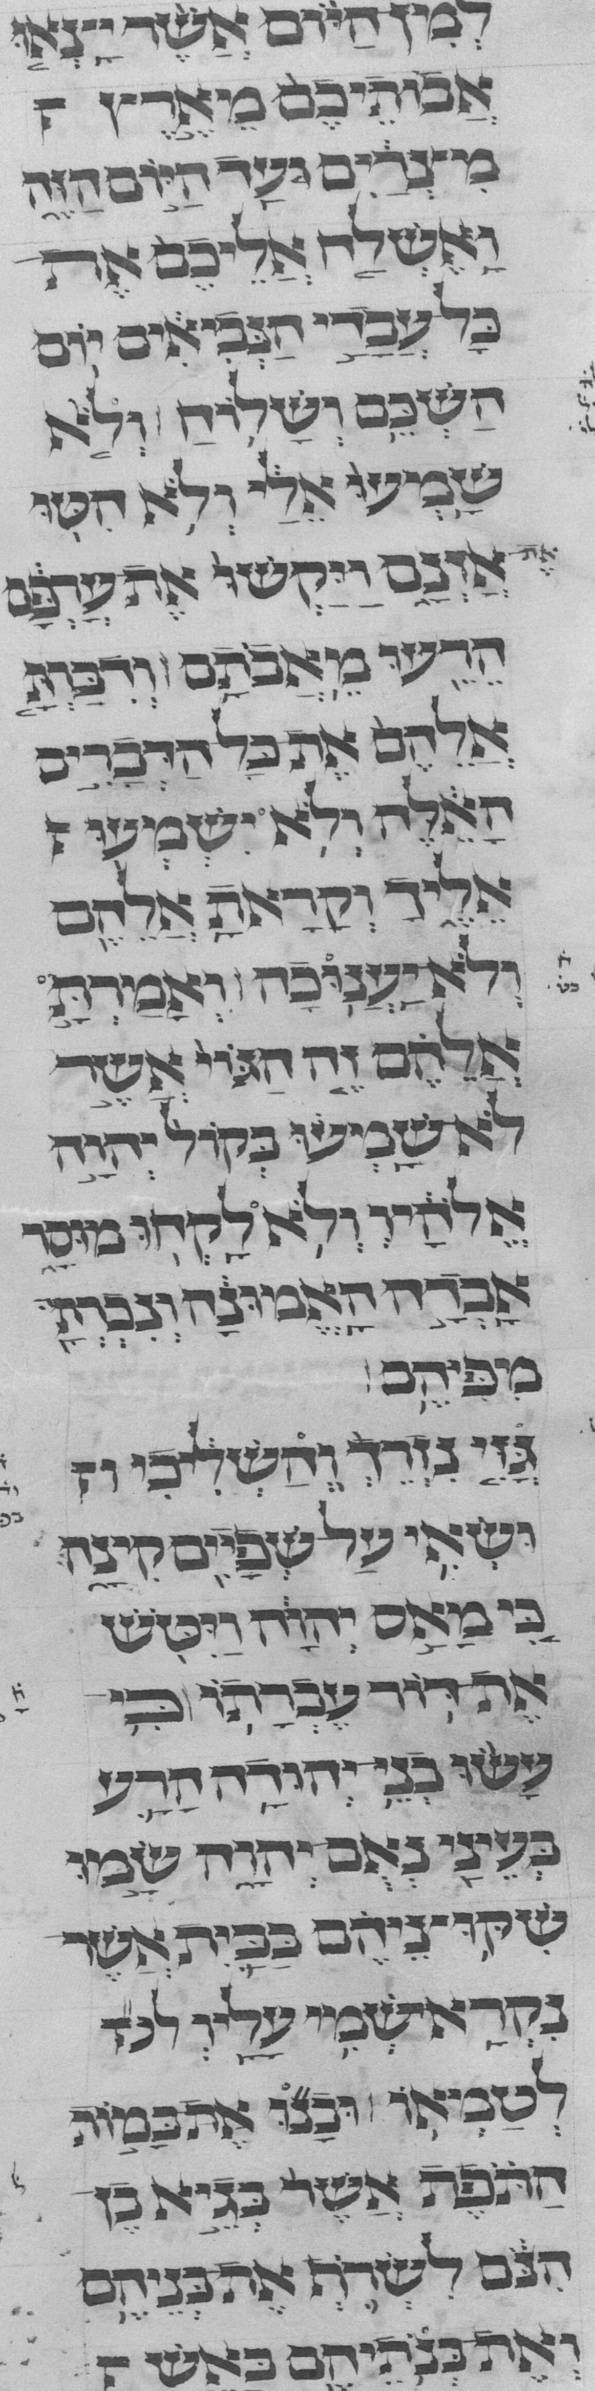 לְמִן הַיּוֹם אֲשֶׁר יָצְאוּ
אֲבוֹתֵיכֶם מֵאֶרֶץ
מִצְרַיִם וְעַד הַיּוֹם הַזֶּה
וָאֶשְׁלַח אֲלֵיכֶם אֶת
כָּל עֲבָדַי הַנְּבִיאִים יוֹם
הַשְׁכֵּם וְשָׁלוֹחַ וְלֹא
שָׁמְעוּ אֵלַי וְלֹא הִטּוּ
את אָזְנָם וַיַּקְשׁוּ אֶת עָרְפָּם
הֵרֵעוּ מֵאֲבֹתָם וְדִבַּרְתָּ
אֲלֵהֶם אֶת כָּל הַדְּבָרִים
הָאֵלֶּה וְלֹא יִשְׁמְעוּ
אֵלֶיךָ וְקָרָאתָ אֲלֵהֶם
וְלֹא יַעֲנוּכָה וְאָמַרְתָּ
אֲלֵהֶם זֶה הַגּוֹי אֲשֶׁר
לֹא שָׁמְעוּ בְּקוֹל יְהוָה
אֱלֹהָיו וְלֹא לָקְחוּ מוּסָר
אָבְדָה הָאֱמוּנָה וְנִכְרְתָה
מִפִּיהֶם
גָּזִּי נִזְרֵךְ וְהַשְׁלִיכִי
וּשְׂאִי עַל שְׁפָיִם קִינָה
כִּי מָאַס יְהוָה וַיִּטֹּשׁ
אֶת דּוֹר עֶבְרָתוֹ כִּי
עָשׂוּ בְנֵי יְהוּדָה הָרַע
בְּעֵינַי נְאֻם יְהוָה שָׂמוּ
שִׁקּוּצֵיהֶם בַּבַּיִת אֲשֶׁר
נִקְרָא שְׁמִי עָלָיו
לְטַמְּאוֹ וּבָנוּ אֶת בָּמוֹת
הַתֹּפֶת אֲשֶׁר בְּגֵיא בֶן
הִנֹּם לִשְׂרֹף אֶת בְּנֵיהֶם
וְאֶת בְּנֹתֵיהֶם בָּאֵשׁ